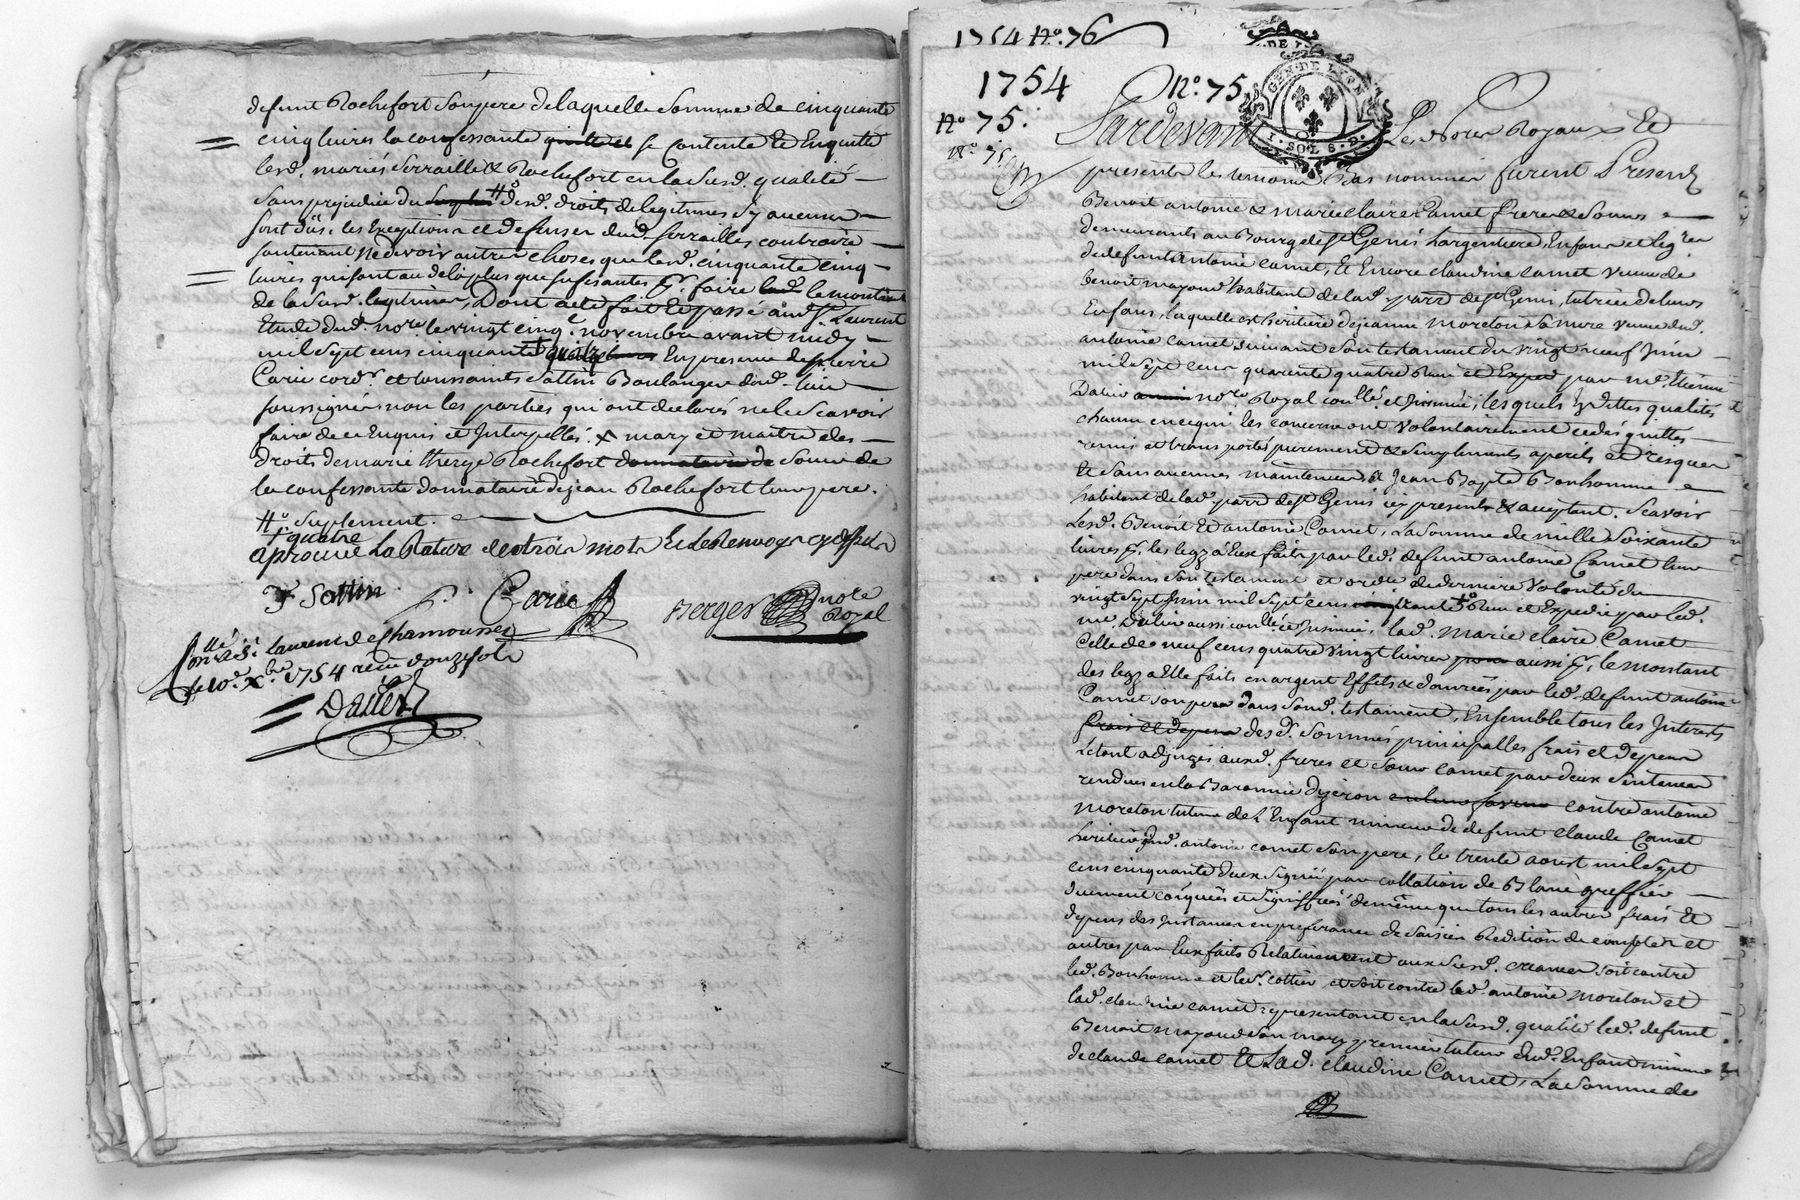 defunt Rochefort son pere de laquelle somme de cinquante
cinq livres la confessante quitte et se contente et en quitte
lesd. mariés Serraille & Rochefort en la susd. qualité
sans prejudice du Ho desd. droits de legitimes s'y aucun
sont dûs, les exceptions et deffenses dud. Serrailles contraire
soutenant ne devoir autre choses que lesd. cinquante cinq
livres qui sont au dela plus que sufisantes pr. faire le montant
de lasusd. legitime, Dont acte fait et passé aud. St. Laurent
Etude dud. nore. le vingt cinq novembre avant midy
mil sept cens cinquante quatre En presence de pierre
Carie cordr. et toussaints Sottin Boulanger dud. lieu
soussignés non les parties qui ont declarés ne le scavoir
faire de ce Enquis et Interpellés. x mary et maitre des
droits de marie therese Rochefort donnataire de soeur de
la confessante donnataire de jean Rochefort leur pere.
Ho. suplement.
+ quatre
aprouvé la Rature de trois mots Et les Renvoys cy dessus
F Sottin Carie Berger nore Royal
Conllé à St. Laurent de Chamousset
le 10e. Xbre 1754 recu douze sols
Dalier
1754 No. 76
1754 No. 75
No 75.
No. 75
GEN. DE LYON
I. SOLS.
Pardevant Le Nores Royaux Et
presents les temoins Bas nommés furent Presents
Benoit antoine & marie claire Camet frere & soeurs
demeurants au Bourg de St. Genis Largentiere, Enfans et legres
du defunt antoine Camet, Et Encore claudine Camet veuve de
Benoit mayoud habitant de lad. parr. de St. Genis, tutrice de leurs
Enfans, laquelle est heritiere de jeanne moreton sa mere veuve dud.
antoine Camet, suivant son testament du vingt neuf juin
mil sept cens quarente quatre Receu et Exped par Me. Etienne
Dalier nore. Royal conllé. et Insinué, lesquels ez dittes qualités
chacun en ce qui les concerne ont volontairement cedés quittes
remis et transportés purement & simplements aperils et risques
Et sans aucunes maintenues, à Jean Bapte Bonhomme
habitant de lad. parr. de St. Genis icy present & acceptant. Scavoir
Lesd. Benoit Et antoine Camet, La somme de mille soixante
livres pr. les legz à Eux faits par led. defunt antoine Camet leur
pere dans son testament et ordre de derniere volonté du
vingt sept juin mil sept cens trente Receu et Expedié par led.
Me. Dalier aussi conllé. et Insinué, lad. marie claire Camet
Celle de neuf cens quatre vingt livres pour aussi pr. le montant
des legz a Elle faits en argent Effets & danrées par led. defunt antoine
Camet son pere dans sond. testament, Ensemble tous les Interests
frais et depens desd. sommes principalles frais et depens
Letout adjugés auxd. freres et soeur Camet par deux sentences
rendues en la Baronnie d'yzeron en leur faveur contre antoine
moreton tuteur de l'Enfant mineur de defunt claude Camet
heritier dud. antoine camet son pere, le trente aoust mil sept
cens cinquante deux signé par collation de Blanc greffier
duement cônquées et Signiffiées de même que tous les autres frais Et
depens des Instances en preferance de saisies Redition de comptes et
autres par Eux faits Relativement aux susd. creances soit contre
led. Bonhomme et le Sr. Cottier et soit contre led. antoine moreton et
lad. claudine camet representant en la susd. qualité led. defunt
Benoit mayoud son mary premier tuteur dud. Enfant mineur
de claude camet Et Lad. claudine Camet, La somme de